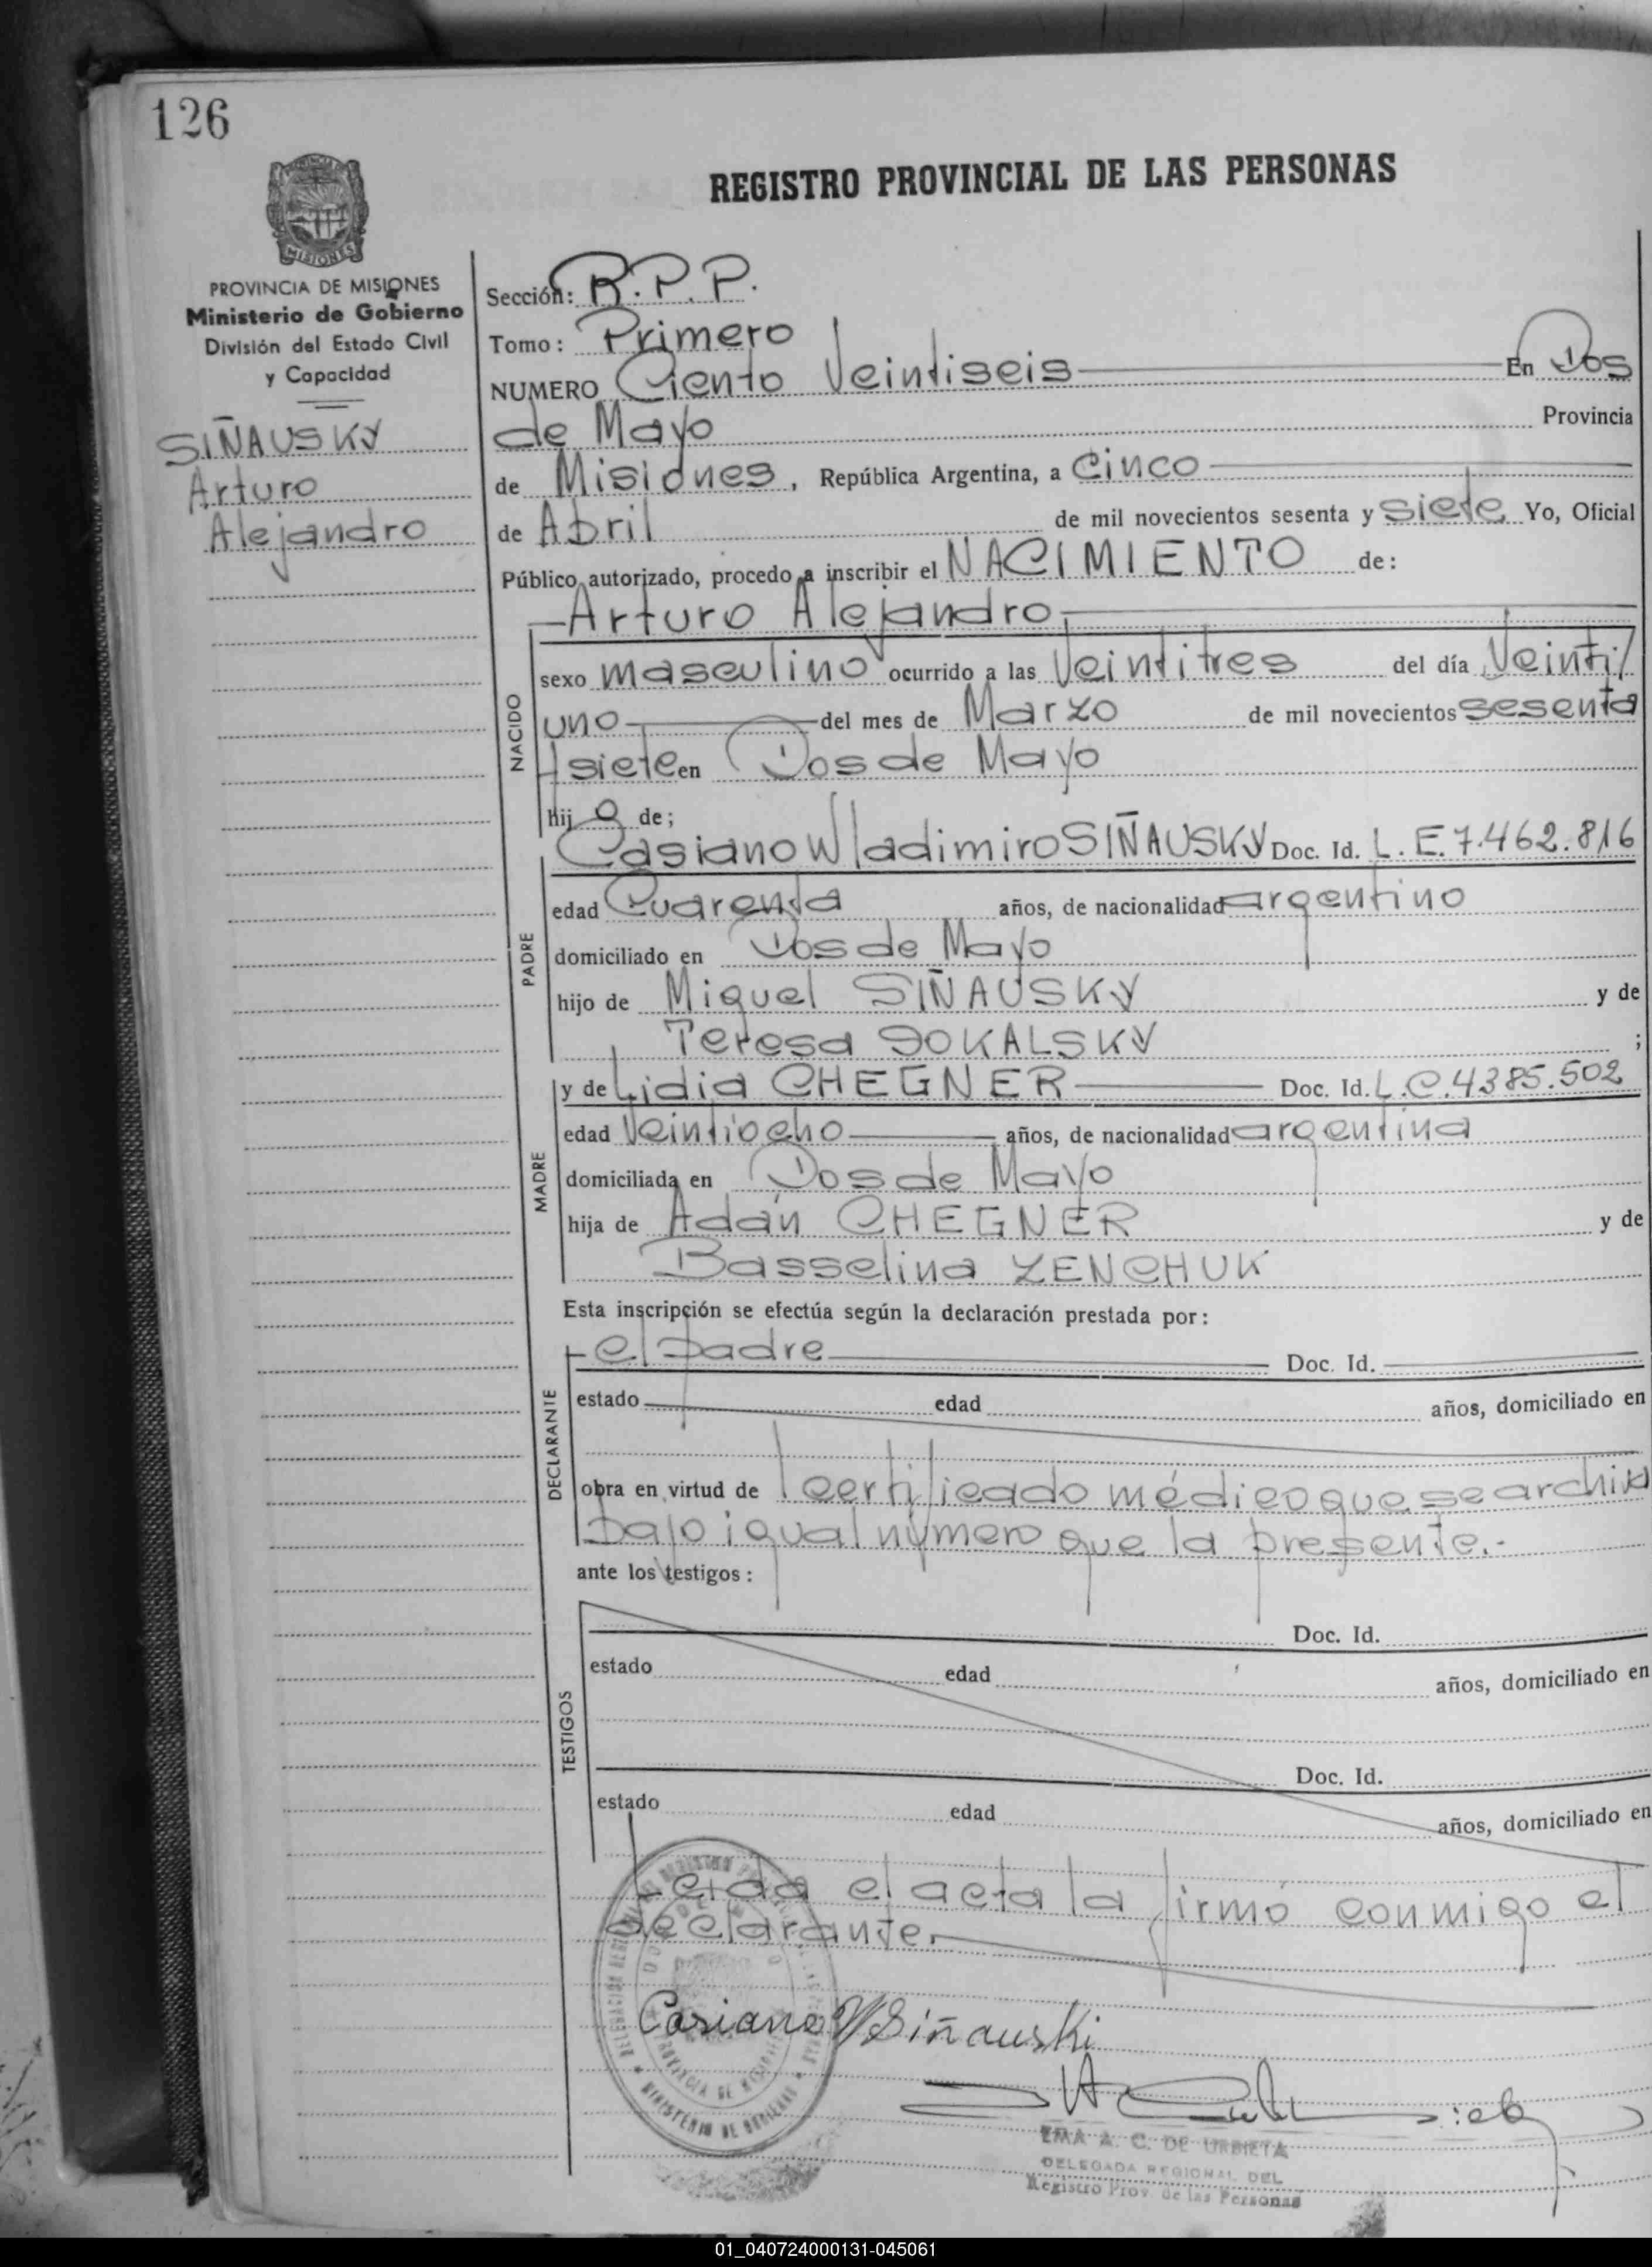 126
REGISTRO PROVINCIAL DE LAS PERSONAS
MISIONES
PROVINCIA DE MISIONES
Ministerio de Gobierno
División del Estado Civil
y Capacidad
SIÑAUSKY
Arturo
Alejandro
Sección: R.P.P.
Tomo: Primero
NUMERO Ciento Veintiseis En Dos
de Mayo Provincia
de Misiones, República Argentina, a Cinco
de Abril de mil novecientos sesenta y siete Yo, Oficial
Público autorizado, procedo a inscribir el NACIMIENTO de:
Arturo Alejandro
NACIDO
sexo masculino ocurrido a las Veintitres del día Veinti/
uno del mes de Marzo de mil novecientos sesenta
siete en Dos de Mayo
hijo de;
PADRE
Casiano Wladimiro SIÑAUSKY Doc. Id. L.E. 7.462.816
edad Cuarenta años, de nacionalidad argentino
domiciliado en Dos de Mayo
hijo de Miguel SIÑAUSKY y de
Teresa SOKALSKY ;
MADRE
y de Lidia CHEGNER Doc. Id. L.C. 4385.502
edad Veintiocho años, de nacionalidad argentina
domiciliada en Dos de Mayo
hija de Adán CHEGNER y de
Basselina ZENCHUK
Esta inscripción se efectúa según la declaración prestada por:
DECLARANTE
el padre Doc. Id.
estado edad años, domiciliado en
obra en virtud de certificado médico que se archiva
bajo igual número que la presente.-
ante los testigos:
TESTIGOS
Doc. Id.
estado edad años, domiciliado en
Doc. Id.
estado edad años, domiciliado en
Leída el acta la firmó conmigo el
declarante.
Casiano W Siñauski
MINISTERIO DE GOBIERNO
PROVINCIA DE MISIONES
EMA A. C. DE URBIETA
DELEGADA REGIONAL DEL
Registro Prov. de las Personas
01_040724000131-045061